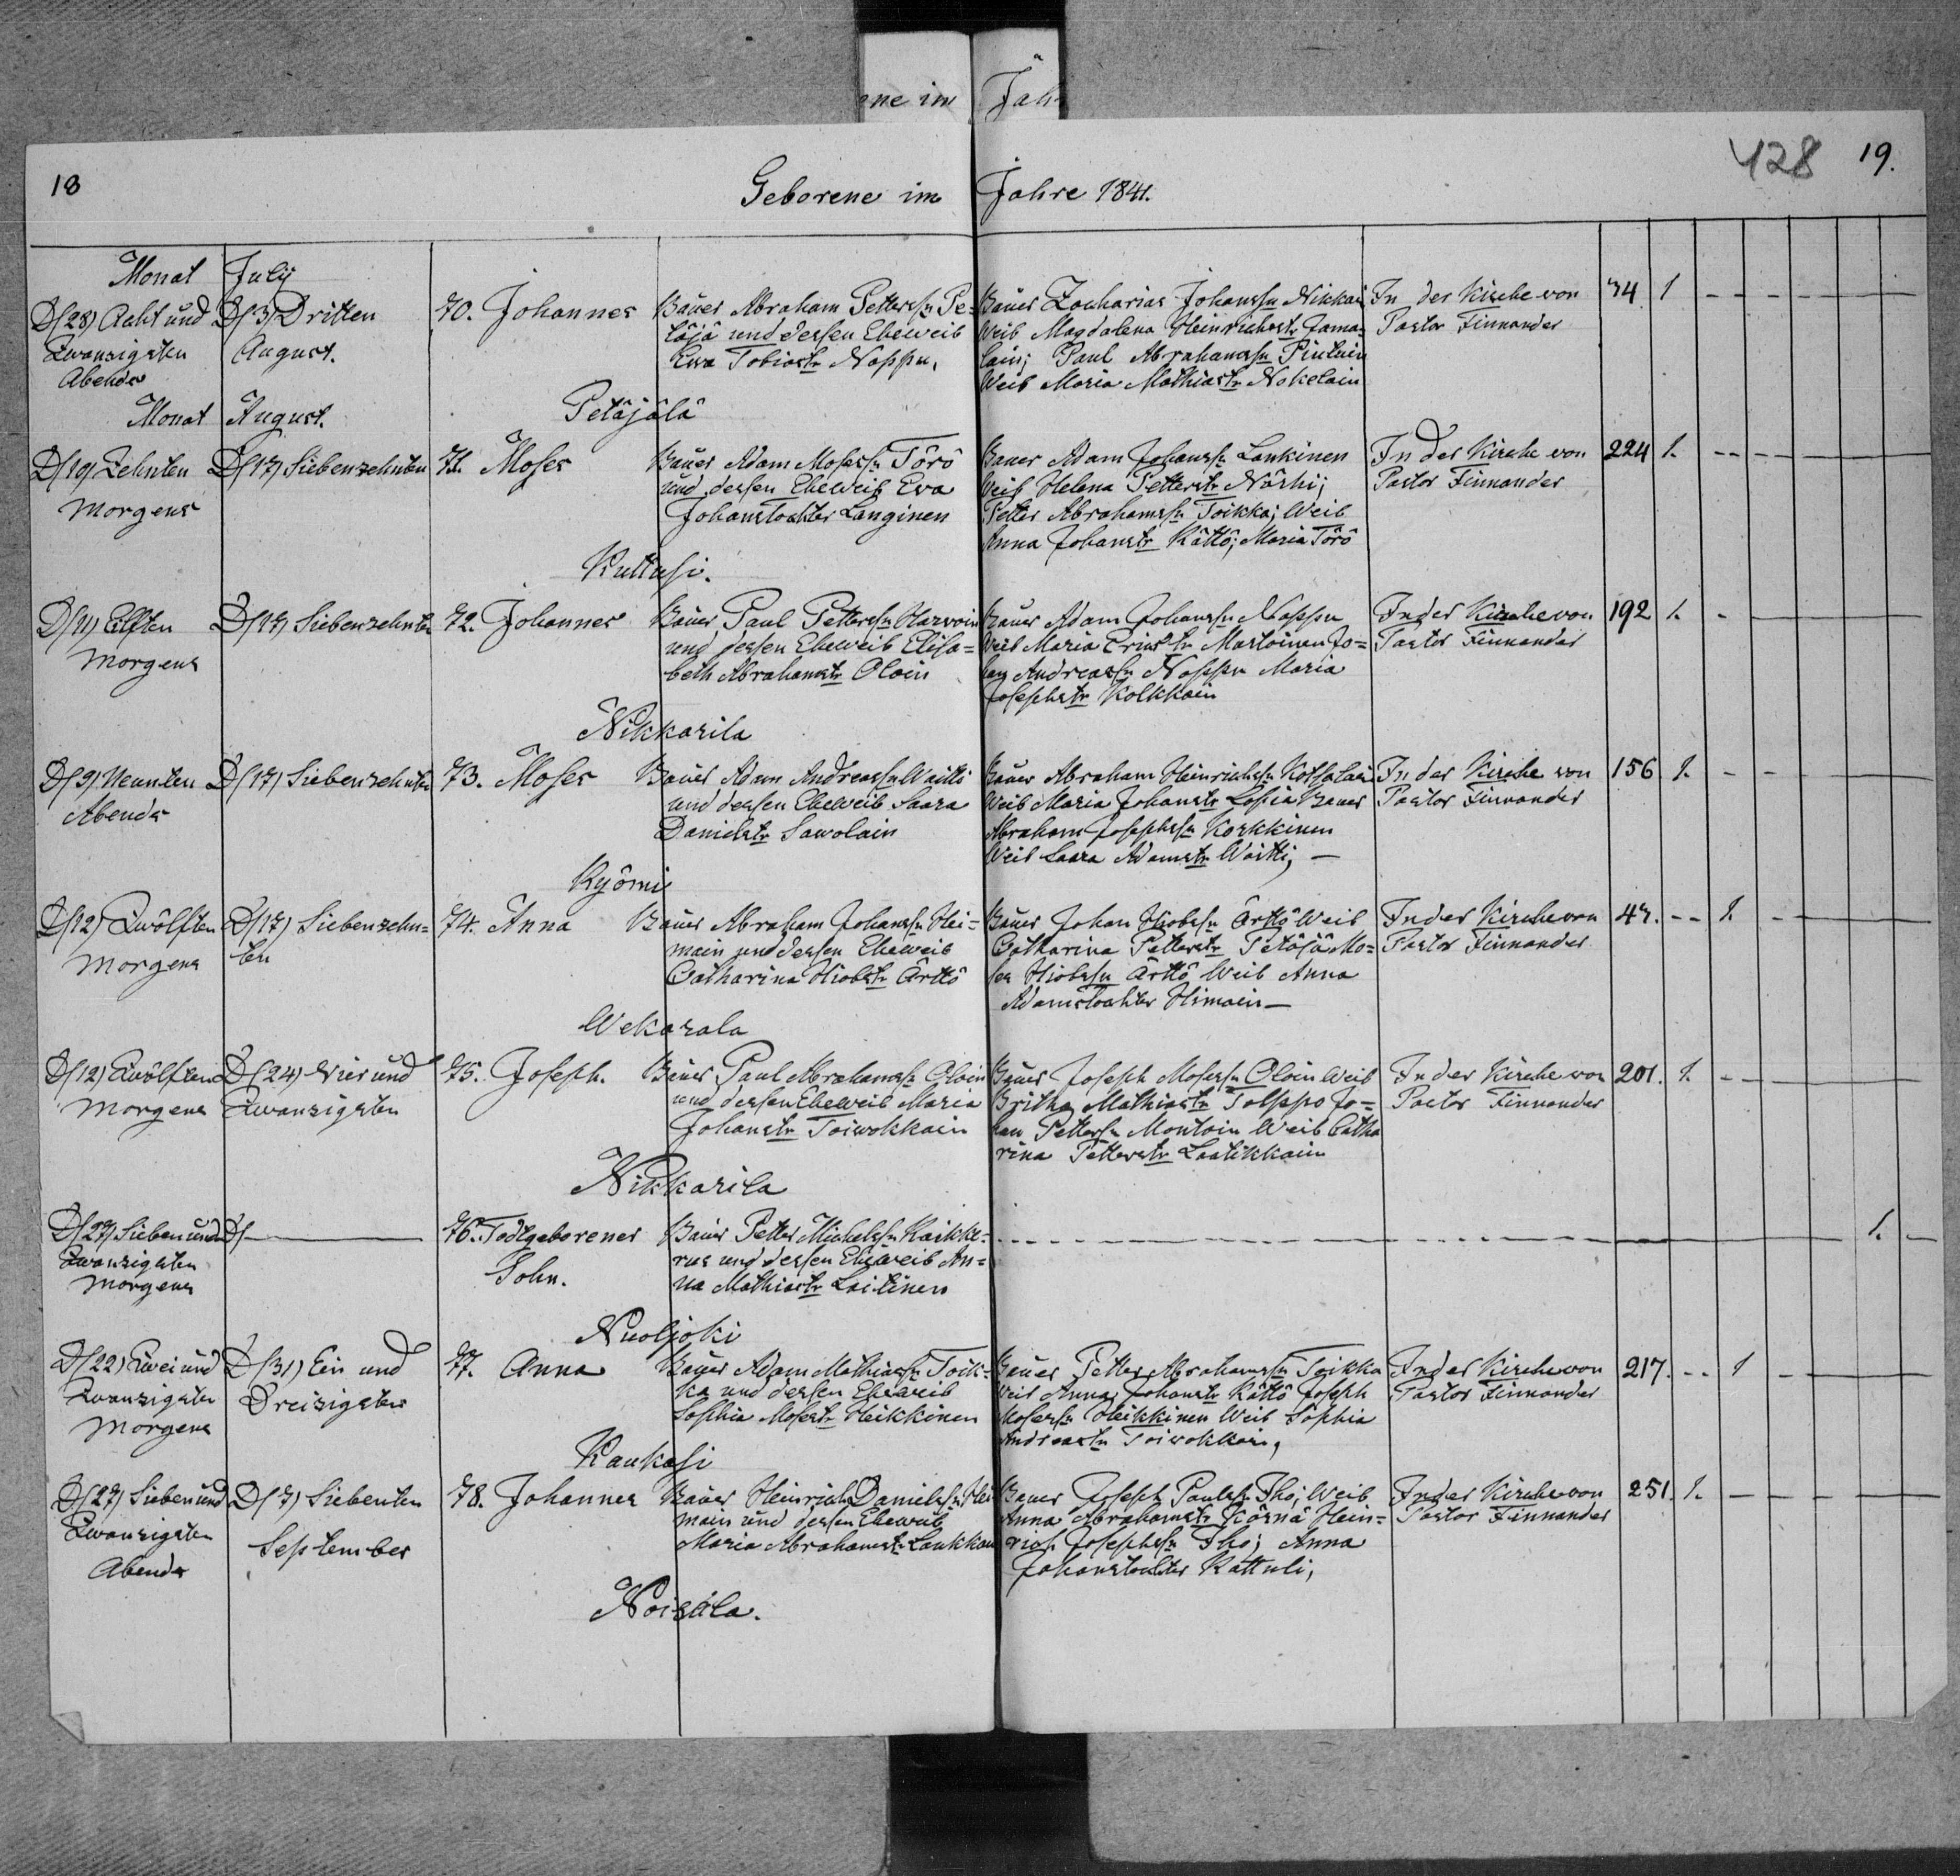 ne im Jah
18
428 19.
Geborene im Jahre 1841.
Monat July
D(28) Acht und
Zwanzigsten
Abends
D(3) Dritten
August.
70. Johannes
Bauer Abraham Petterssn Pe=
täjä und dessen Eheweib
Ewa Tobiastr Noppu,
Bauer Zacharias Johanssn Nikkai
Weib Magdalena Heinrichstr Jama=
lain; Paul Abrahamssn Pintain
Weib Maria Mathiastr Nokelain
In der Kirche von
Pastor Finnander
74 1
Petäjälä
Monat August.
D(10) Zehnten
Morgens
D(17) Siebenzehnten
71. Moses
Bauer Adam Mosessn Törö
und dessen Eheweib Eva
Johanstochter Langinen
Bauer Adam Johanssn Lankinen
Weib Helena Petterstr Närhi;
Petter Abrahamssn Toikka; Weib
Anna Johanstr Kättö; Maria Törö
In der Kirche von
Pastor Finnander
224 1.
Kuttusi.
D(11) Eilften
Morgens
D(17) Siebenzehnten
72. Johannes
Bauer Paul Petterssn Harwoin
und dessen Eheweib Elisa=
beth Abrahamstr Oloin
Bauer Adam Johanssn Noppu
Weib Maria Erikstr Martoinen Jo=
han Andreassn Noppu Maria
Josephstr Kolkkain
In der Kirche von
Pastor Finnander
192 1.
Nikkarila
D(9) Neunten
Abends
D(17) Siebenzehnten
73. Moses
Bauer Adam Andreassn Waitti
und dessen Eheweib Saara
Danielstr Sawolain
Bauer Abraham Heinrichssn Kotsalain
Weib Maria Johanstr Bauer
Abraham Josephssn Korkkinen
Weib Saara Adamstr Waitti, —
In der Kirche von
Pastor Finnander
156 1.
Kyömi
D(12) Zwölften
Morgens
D(17) Siebenzehn=
ten
74. Anna
Bauer Abraham Johanssn Hei=
main und dessen Eheweib
Catharina Hiobstr Ärttö
Bauer Johan Hiobssn Ärttö Weib
Catharina Petterstr Petäjä Mo=
ses Hiobssn Ärttö Weib Anna
Adamstochter Himain —
In der Kirche von
Pastor Finnander
47. 1.
Wekarala
D(12) Zwölften
Morgens
D(24) Vier und
Zwanzigsten
75. Joseph.
Bauer Paul Abrahamssn Oloin
und dessen Eheweib Maria
Johanstr Toiwokkain
Bauer Joseph Mosessn Oloin Weib
Britha Mathiastr Tolppo Jo=
han Petterssn Montoin Weib Catha
rina Petterstr Laatikkain
In der Kirche von
Pastor Finnander
201. 1.
Nikkarila
D(27) Sieben und
Zwanzigsten
Morgens
D(
76. Todtgeborener
Sohn.
Bauer Petter Michelssn Kaikke=
rus und dessen Eheweib An=
na Mathiastr Laitinen
1.
Nuoljoki
D(22) Zwei und
Zwanzigsten
Morgens
D(31) Ein und
Dreizigsten
77. Anna
Bauer Adam Mathiassn Toik=
ka und dessen Eheweib
Sophia Mosestr Heikkinen
Bauer Petter Abrahamssn Toikka
Weib Anna Johanstr Kättö Joseph
Mosessn Heikkinen Weib Sophia
Andreastr Toiwokkain,
In der Kirche von
Pastor Finnander
217. 1
Kaukasi
D(27) Sieben und
Zwanzigsten
Abends
D(7) Siebenten
September
78. Johannes
Bauer Heinrich Danielssn Hei
main und dessen Eheweib
Maria Abrahamstr Laukkan
Bauer Joseph Paulssn Iho; Weib
Anna Abrahamstr Körnä Hein=
rich Josephssn Iho; Anna
Johanstochter Kattuli,
In der Kirche von
Pastor Finnander
251. 1.
Noisila.